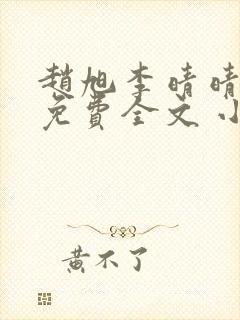 趙旭李晴晴
免費全文小
黃不了